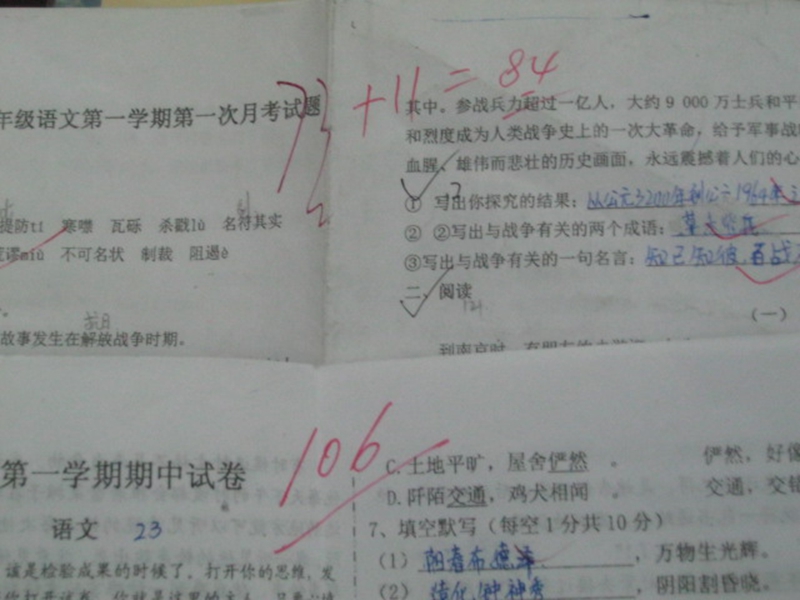 73+11=84
年级语文第一学期第一次月考试题
提防tí 寒噤 瓦砾 杀戮lù 名符其实
谬miù 不可名状 制裁 阻遏è
故事发生在解放战争时期。
抗日
其中。参战兵力超过一亿人，大约9 000万士兵和平
和烈度成为人类战争史上的一次大革命，给予军事战
血腥、雄伟而悲壮的历史画面，永远震撼着人们的心
① 写出你探究的结果：从公元3200年到公元1964年
② ②写出与战争有关的两个成语：
③写出与战争有关的一句名言：知已知彼,百战
二、阅读
（一）
到南京时，有朋友约去游逛
第一学期期中试卷
106
语文 23
该是检验成果的时候了。打开你的思维，发
C.土地平旷，屋舍俨然 俨然，好像
D.阡陌交通，鸡犬相闻 交通，交错
7、填空默写（每空1分共10分）
（1）阳春布德泽，万物生光辉。
（2）造化钟神秀，阴阳割昏晓。